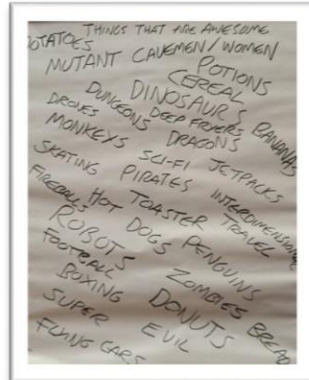 THINGS THAT ARE AWESOME
POTATOES
MUTANT CAVEMEN/WOMEN
POTIONS
CEREAL
DINOSAURS
BANANAS
DUNGEONS
DEEP FRYERS
DRONES
DRAGONS
MONKEYS
SCI-FI
JETPACKS
SKATING
PIRATES
INTERDIMENSIONAL
TRAVEL
FIREBALLS
HOT DOGS
TOASTER
PENGUINS
ROBOTS
FOOTBALL
ZOMBIES
BREAD
BOXING
DONUTS
SUPER
EVIL
FLYING CARS